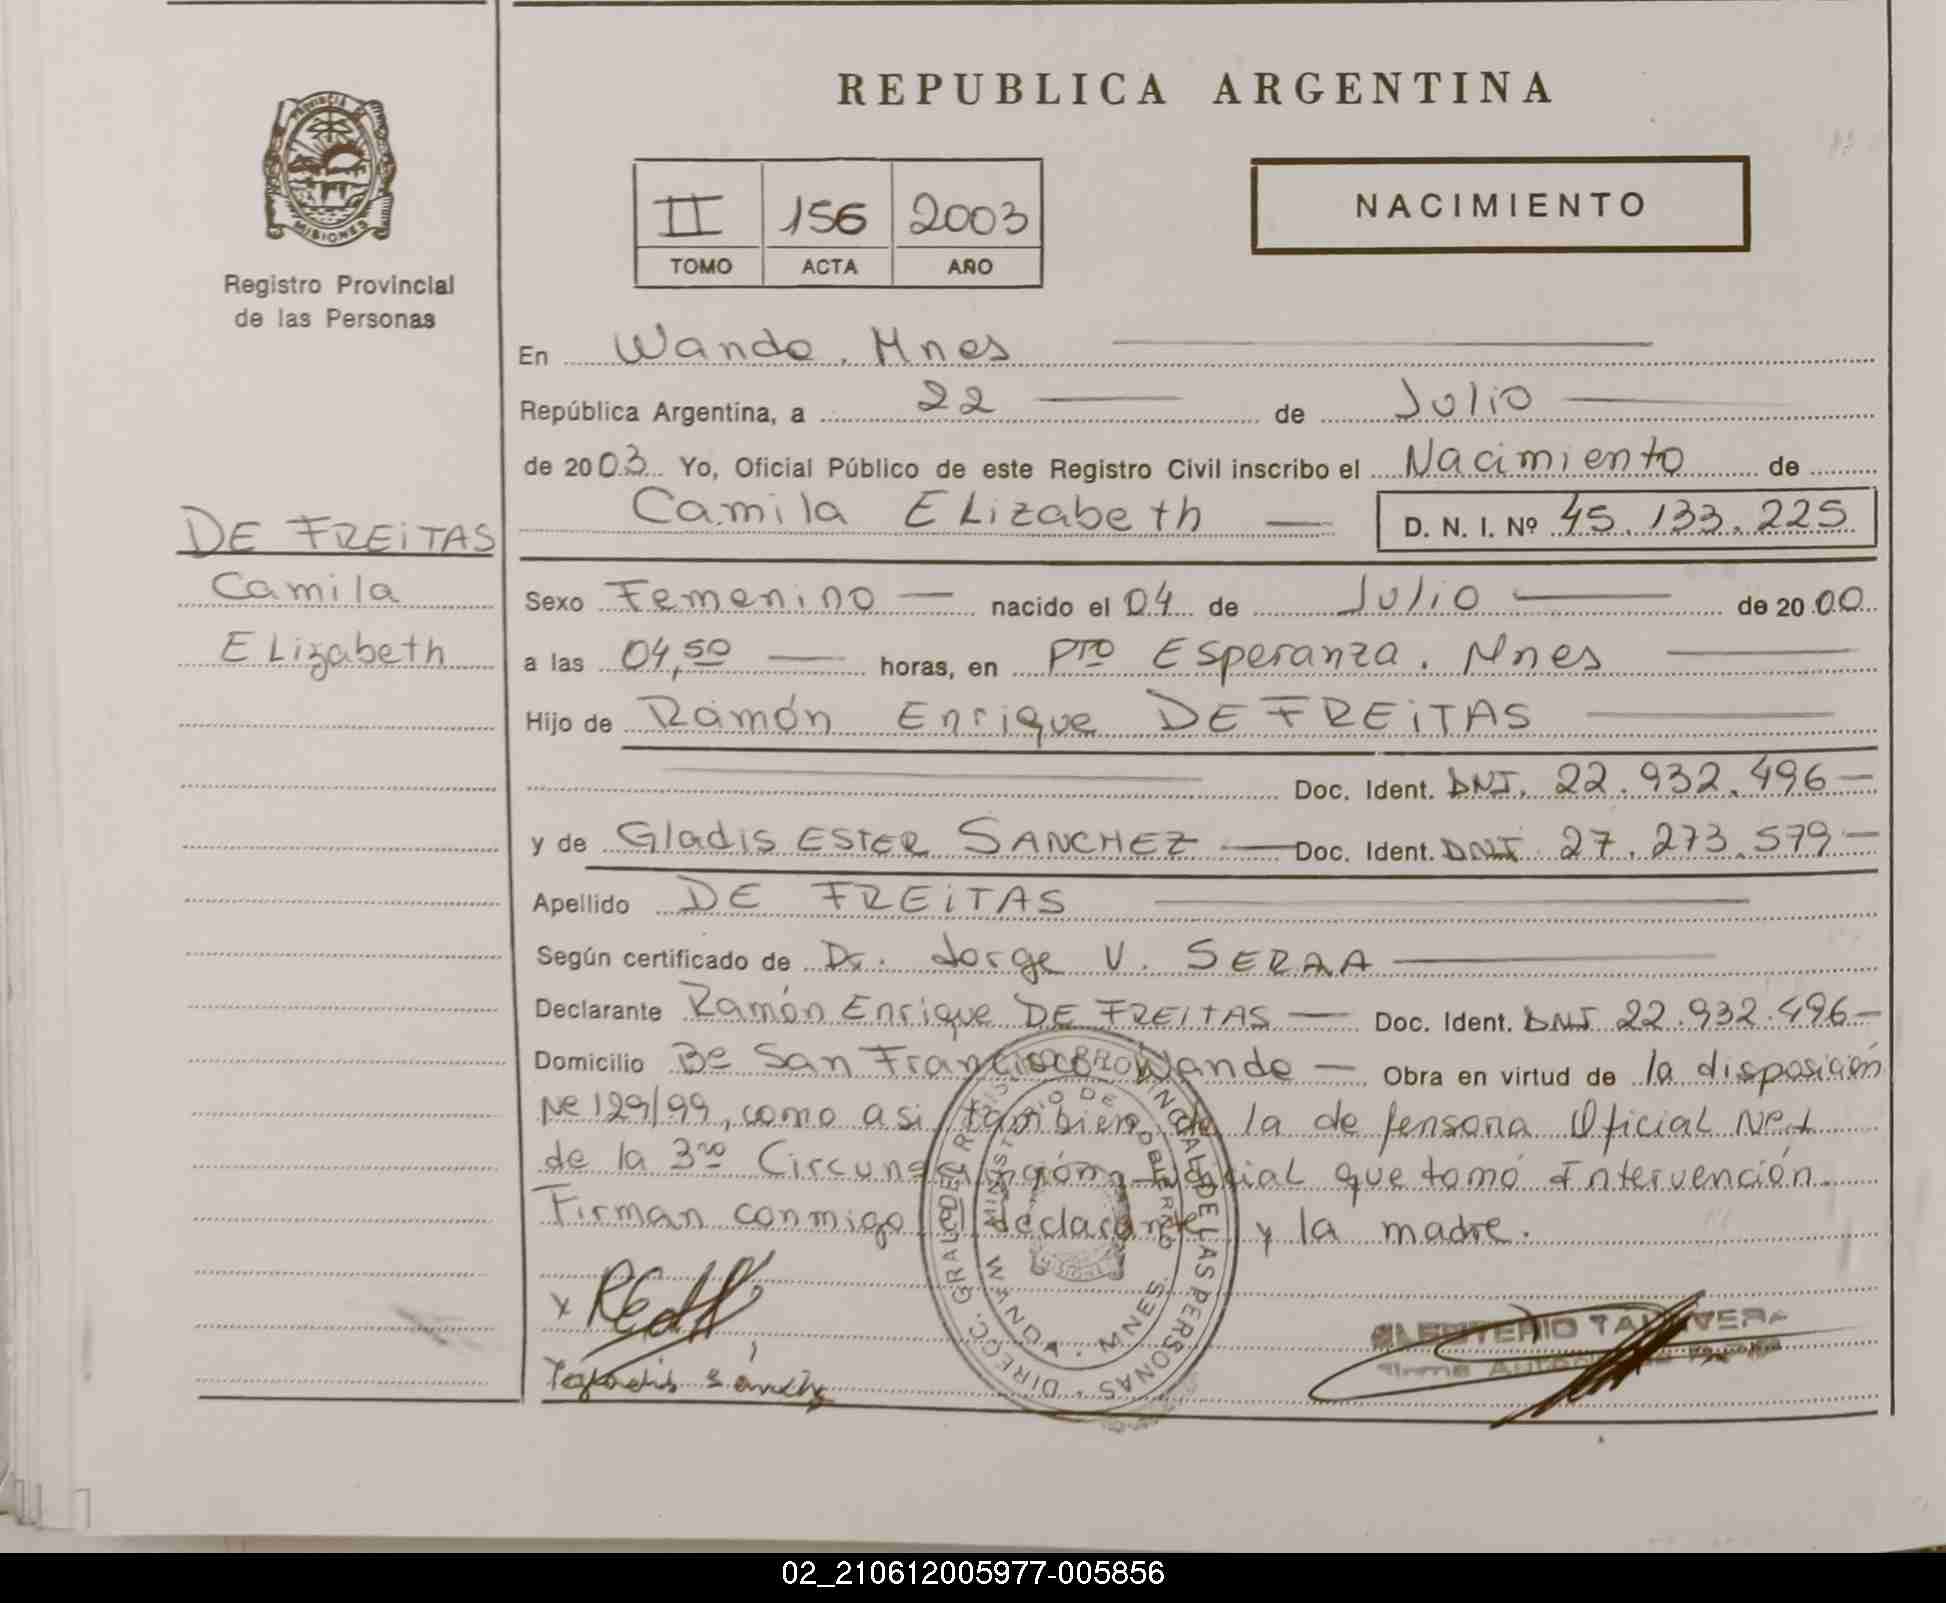 REPUBLICA ARGENTINA
PROVINCIA DE MISIONES
Registro Provincial
de las Personas
II 156 2003
TOMO ACTA AÑO
NACIMIENTO
En Wanda. Mnes
República Argentina, a 22 de Julio
de 2003 Yo, Oficial Público de este Registro Civil inscribo el Nacimiento de
Camila ELizabeth D. N. I. Nº 45.133.225
DE FREiTAS
Camila
ELizabeth
Sexo Femenino nacido el 04 de Julio de 2000
a las 04,50 horas, en Pto Esperanza. Mnes
Hijo de Ramón Enrique DE FREiTAS
Doc. Ident. DNI. 22.932.496
y de Gladis ESTER SANCHEZ Doc. Ident. DNI 27.273.579
Apellido DE FREiTAS
Según certificado de Dr. Jorge V. SERRA
Declarante Ramón Enrique DE FREITAS Doc. Ident. DNI 22.932.496
Domicilio Bº San Francisco Wanda Obra en virtud de la disposición
Nº 129/99, como asi tambien de la defensoria Oficial Nº 1
de la 3ra Circunscripción Judicial que tomó Intervención
Firman conmigo el declarante y la madre.
DIRECC. GRAL. DEL REGISTRO PROVINCIAL DE LAS PERSONAS
MINISTERIO DE GOBIERNO
WANDA - MNES.
ELEUTERIO TALAVERA
02_210612005977-005856